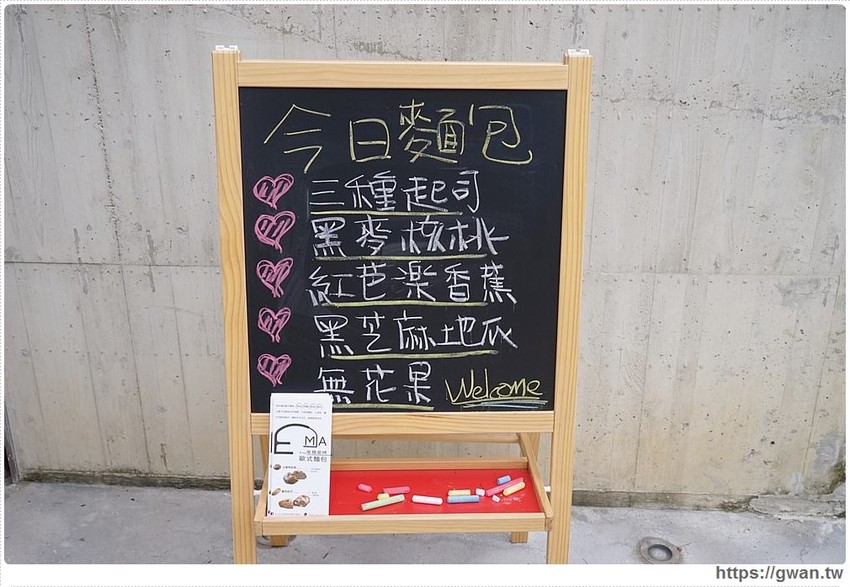 今日麵包
三種起司
黑麥核桃
紅芭樂香蕉
黑芝麻地瓜
無花果
Welcome
EMMA
歐式麵包
https://gwan.tw